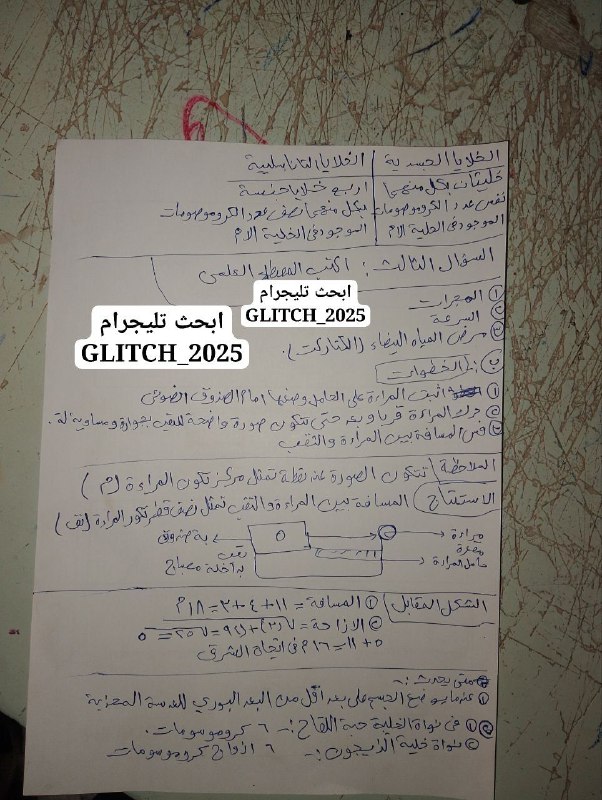 الخلايا الجسدية | الخلايا التناسلية
خليتان بكل منهما | اربع خلايا جنسية
نفس عدد الكروموسومات | بكل منهما نصف عدد الكروموسومات
الموجود فى الخلية الام | الموجود فى الخلية الام
السؤال الثالث: اكتب المصطلح العلمى
ابحث تليجرام
GLITCH_2025
① المجرات
② السرعة
ابحث تليجرام
GLITCH_2025
③ مرض المياه البيضاء (الكتاركت).
ب) الخطوات
① اثبت المراءة على الحامل وضعها امام الصندوق الضوئى
② حرك المراءة قربا وبعد حتى تتكون صورة واضحة للثقب بجواره ومساويه له.
③ قس المسافة بين المراءة والثقب
الملاحظة / تتكون الصورة عند نقطة تمثل مركز تكور المراءة (م)
الاستنتاج / المسافة بين المراءة والثقب تمثل نصف قطر تكور المراءة (نق)
مراءة
مقعرة
حامل المراءة
ثقب
بداخله مصباح
الشكل المقابل
① المسافة = ١١+٤+٣ = ١٨م
② الازاحة =
٥+١١=١٦م فى اتجاة الشرق
متى يحدث:-
① عندما يوضع الجسم على بعد أقل من البعد البؤري للعدسة المحدبة
① فى نواة الخلية حبة اللقاح :- ٦ كروموسومات.
② نواة خلية الزيجوت :- ٦ ازواج كروموسومات